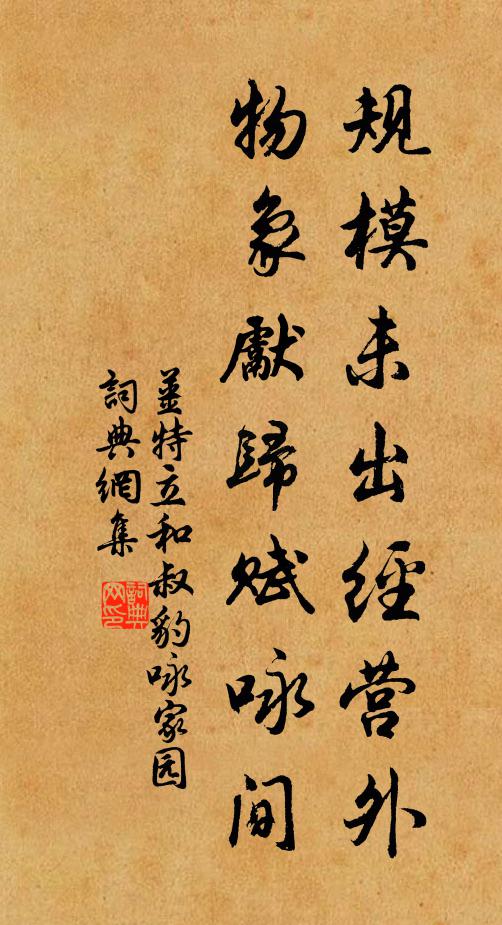 規模未出經营外
物象獻歸賦咏間
姜特立和叔豹咏家园
詞典網集
詞典
网印